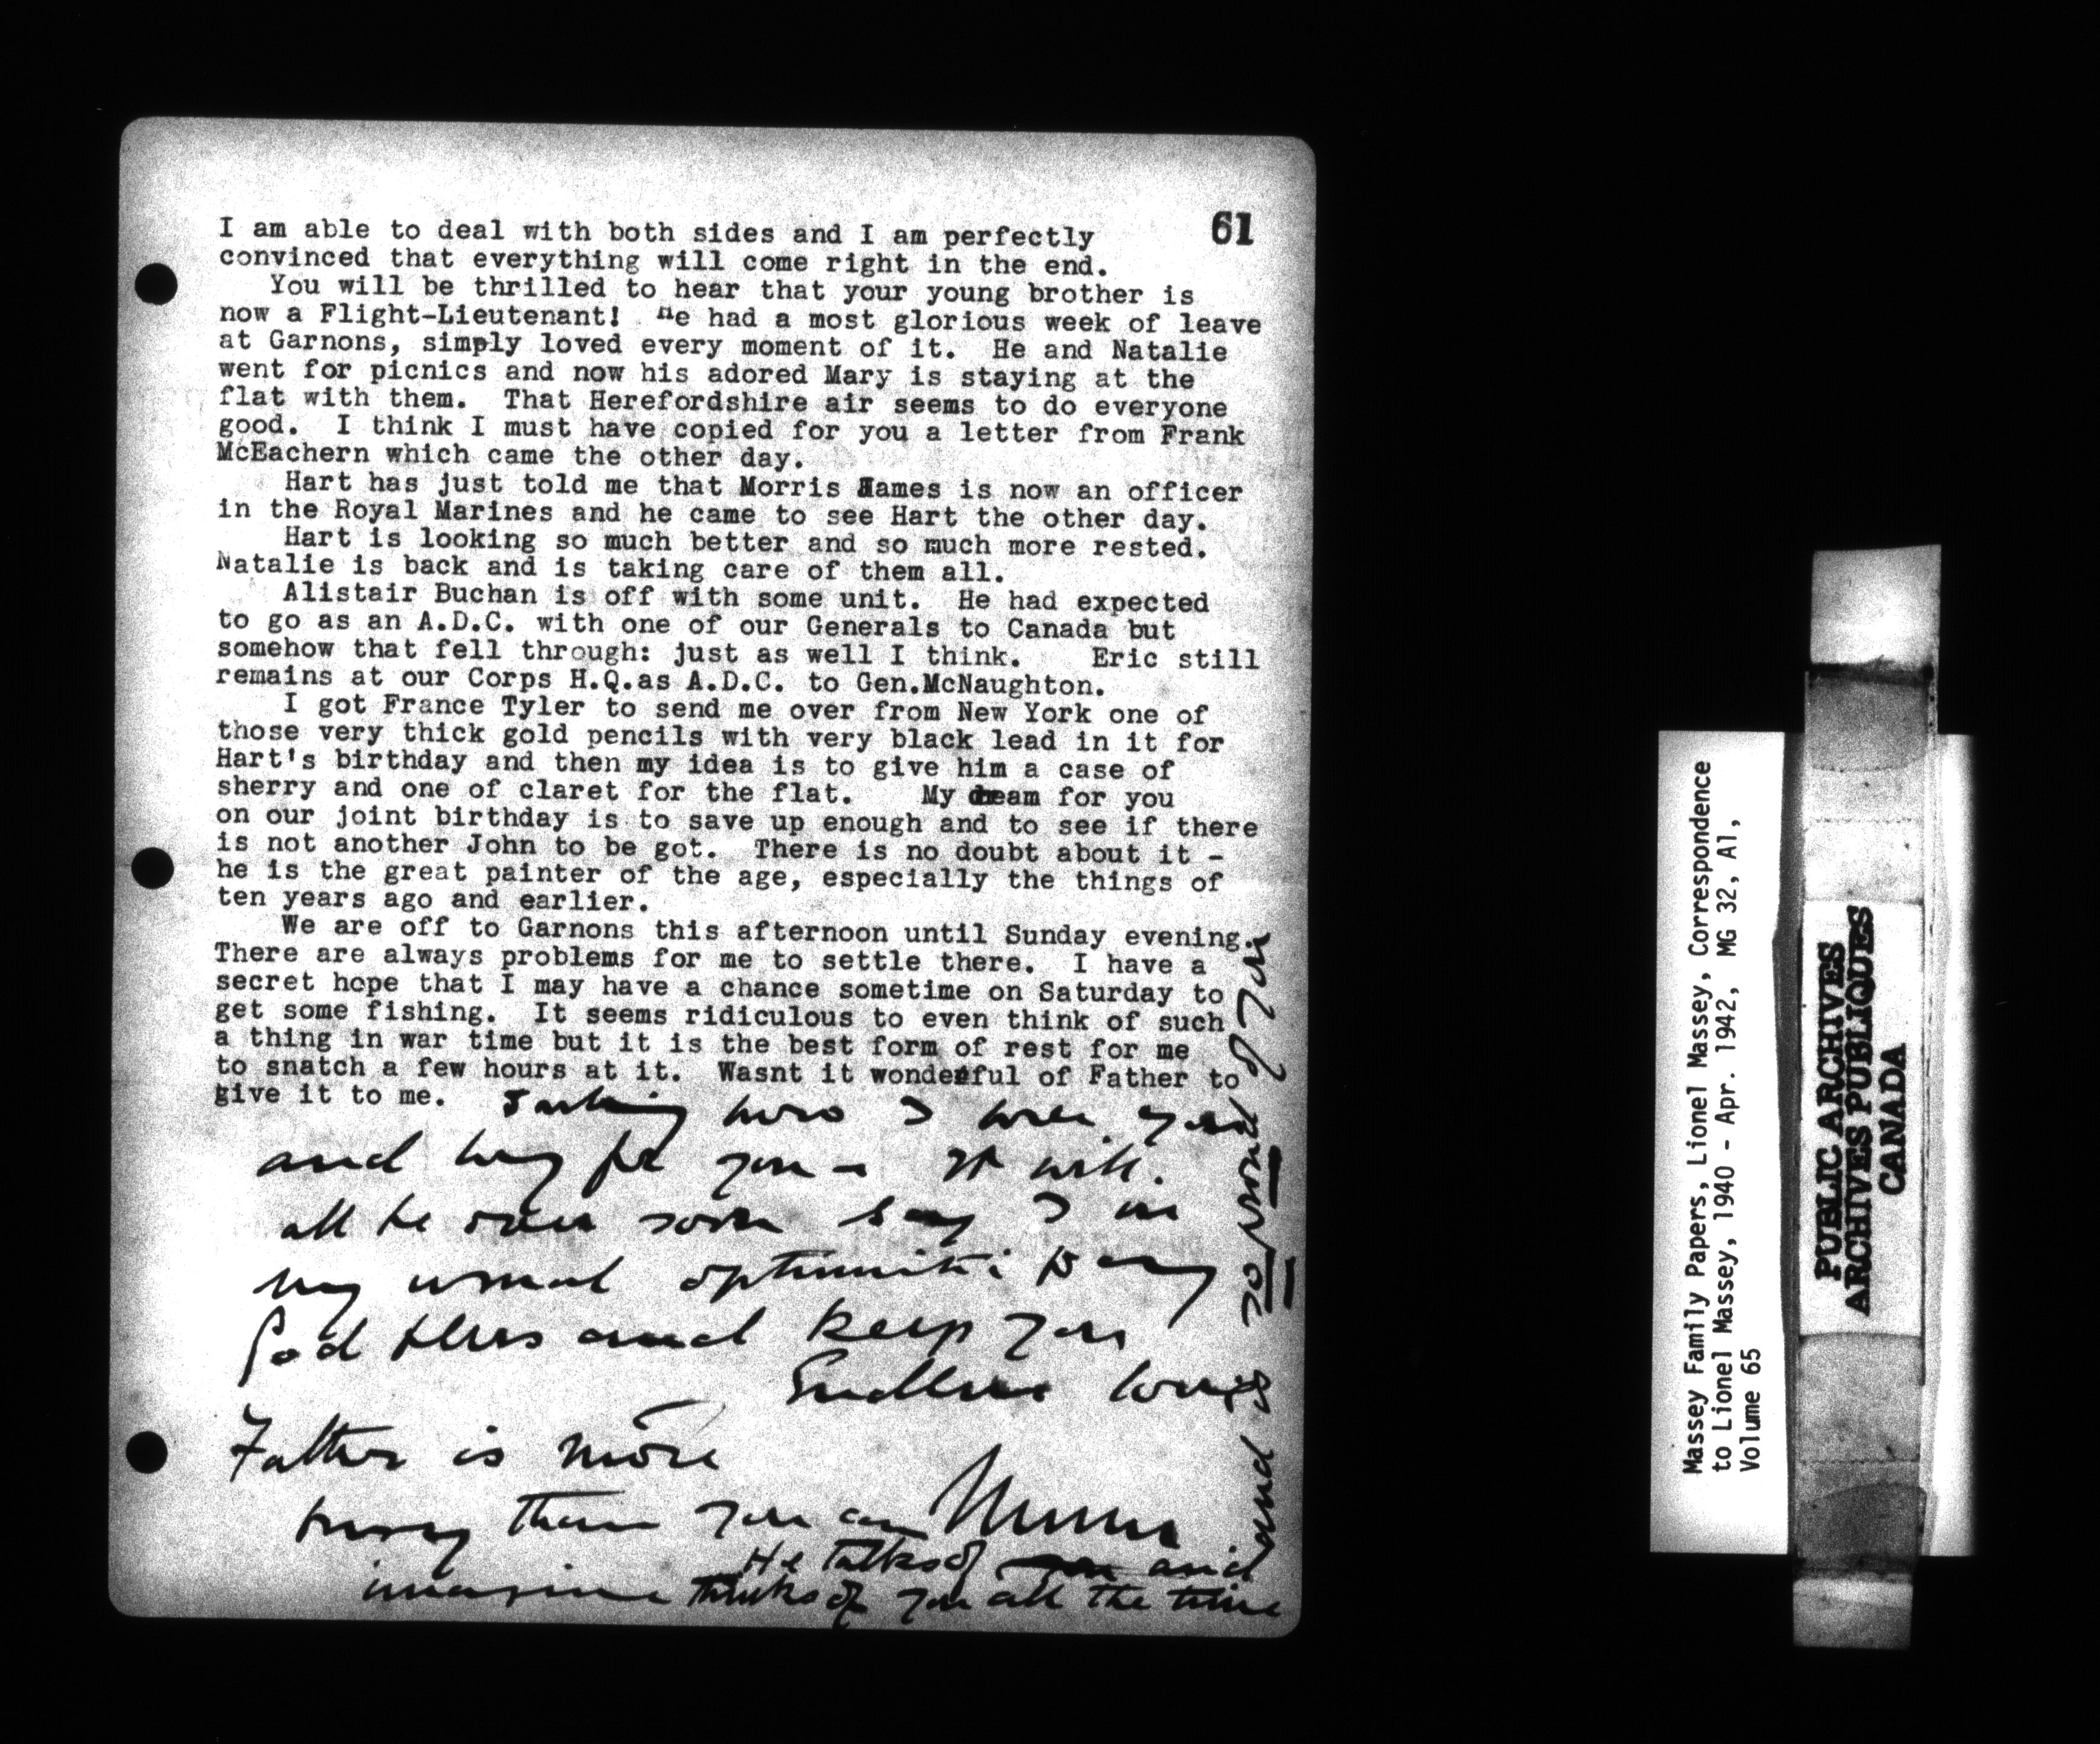 61
I am able to deal with both sides and I am perfectly
convinced that everything will come right in the end.
You will be thrilled to hear that your young brother is
now a Flight-Lieutenant! He had a most glorious week of leave
at Garnons, simply loved every moment of it. He and Natalie
went for picnics and now his adored Mary is staying at the
flat with them. That Herefordshire air seems to do everyone
good. I think I must have copied for you a letter from Frank
McEachern which came the other day.
Hart has just told me that Morris James is now an officer
in the Royal Marines and he came to see Hart the other day.
Hart is looking so much better and so much more rested.
Natalie is back and is taking care of them all.
Alistair Buchan is off with some unit. He had expected
to go as an A.D.C. with one of our Generals to Canada but
somehow that fell through: just as well I think. Eric still
remains at our Corps H.Q.as A.D.C. to Gen.McNaughton.
I got France Tyler to send me over from New York one of
those very thick gold pencils with very black lead in it for
Hart's birthday and then my idea is to give him a case of
sherry and one of claret for the flat. My dream for you
on our joint birthday is to save up enough and to see if there
is not another John to be got. There is no doubt about it -
he is the great painter of the age, especially the things of
ten years ago and earlier.
We are off to Garnons this afternoon until Sunday evening.
There are always problems for me to settle there. I have a
secret hope that I may have a chance sometime on Saturday to
get some fishing. It seems ridiculous to even think of such
a thing in war time but it is the best form of rest for me
to snatch a few hours at it. Wasnt it wonderful of Father to
give it to me.
Darling how I love you
and long for you - It will
all be over soon say I in
my usual optimistic way
God bless and keep you
Endless love
Mum
Father is more
busy than you can
imagine
He talks of you and
thinks of you all the time
and is so proud of you
Massey Family Papers, Lionel Massey, Correspondence
to Lionel Massey, 1940 - Apr. 1942, MG 32, A1,
Volume 65
PUBLIC ARCHIVES
ARCHIVES PUBLIQUES
CANADA